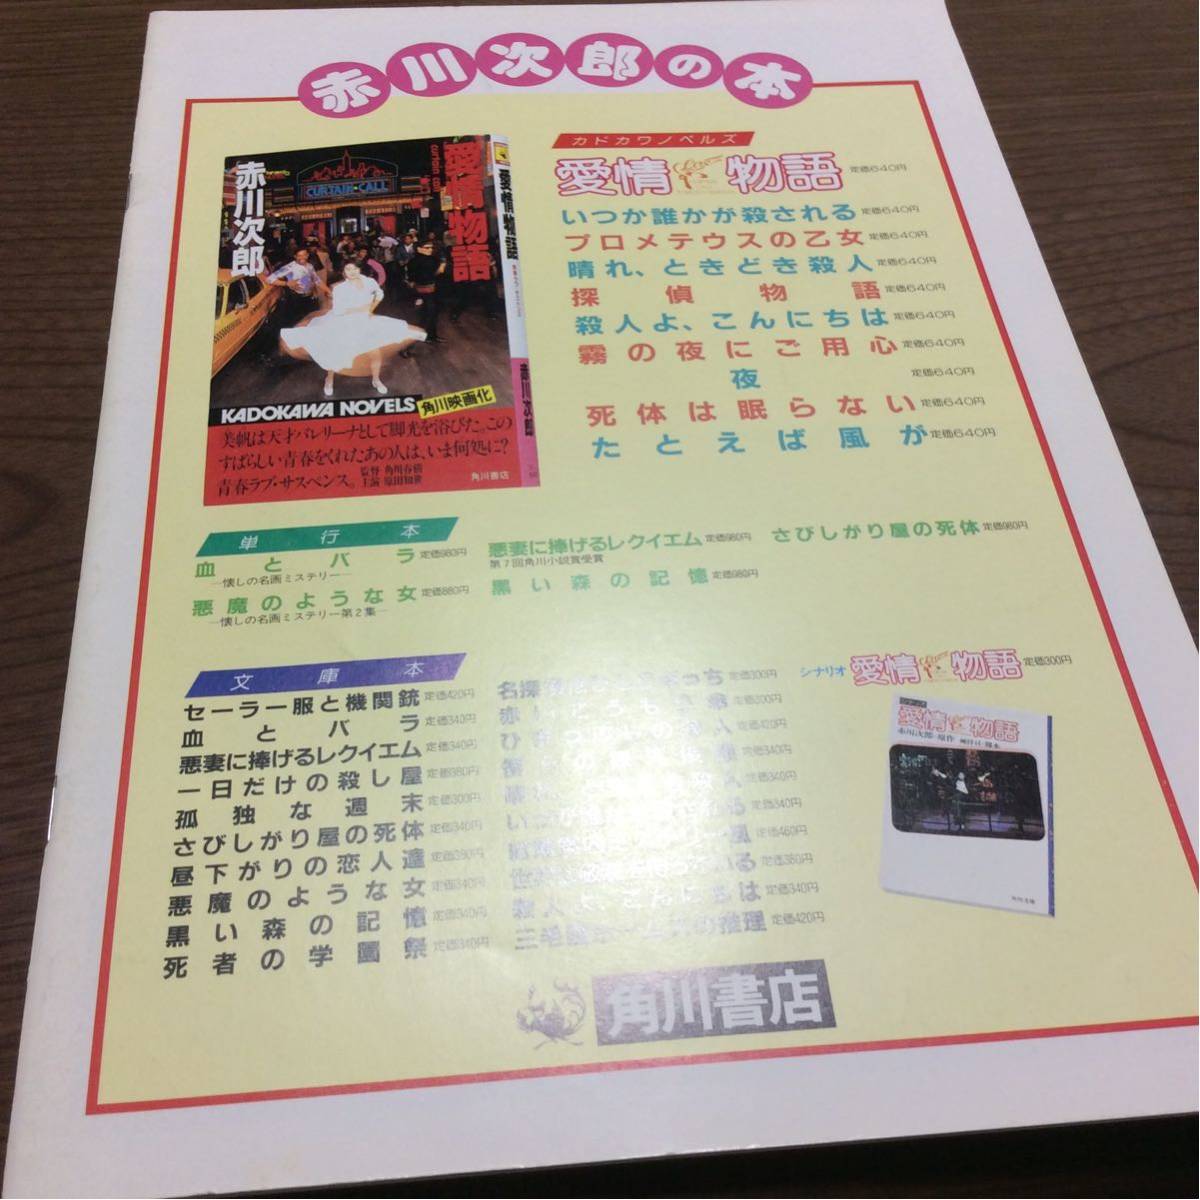 赤川次郎の本
赤川次郎
愛情物語
curtain call
CURTAIN CALL
KADOKAWA NOVELS
角川映画化
美帆は天才バレリーナとして脚光を浴びた。この
すばらしい青春をくれたあの人は、いま何処に?
青春ラブ・サスペンス。
監督 角川春樹
主演 原田知世
角川書店
愛情物語
赤川次郎
カドカワノベルズ
愛情物語 定価640円
いつか誰かが殺される 定価640円
プロメテウスの乙女 定価640円
晴れ、ときどき殺人 定価640円
探偵物語 定価640円
殺人よ、こんにちは 定価640円
霧の夜にご用心 定価640円
夜 定価640円
死体は眠らない 定価640円
たとえば風が 定価640円
単行本
血とバラ 定価980円
―懐しの名画ミステリー―
悪魔のような女 定価880円
―懐しの名画ミステリー第2集―
悪妻に捧げるレクイエム 定価980円
第7回角川小説賞受賞
黒い森の記憶 定価980円
さびしがり屋の死体 定価980円
文庫本
セーラー服と機関銃 定価420円
血とバラ 定価340円
悪妻に捧げるレクイエム 定価340円
一日だけの殺し屋 定価380円
孤独な週末 定価300円
さびしがり屋の死体 定価340円
昼下がりの恋人達 定価380円
悪魔のような女 定価340円
黒い森の記憶 定価340円
死者の学園祭 定価340円
名探 っち 定価300円
赤 こうも 定価300円
ひ 人 定価420円
定価340円
定価340円
い 定価340円
定価460円
世 いる 定価380円
殺人よ、こんにちは 定価340円
三毛猫ホームズの推理 定価420円
シナリオ 愛情物語 定価300円
愛情物語
赤川次郎 原作
角川書店